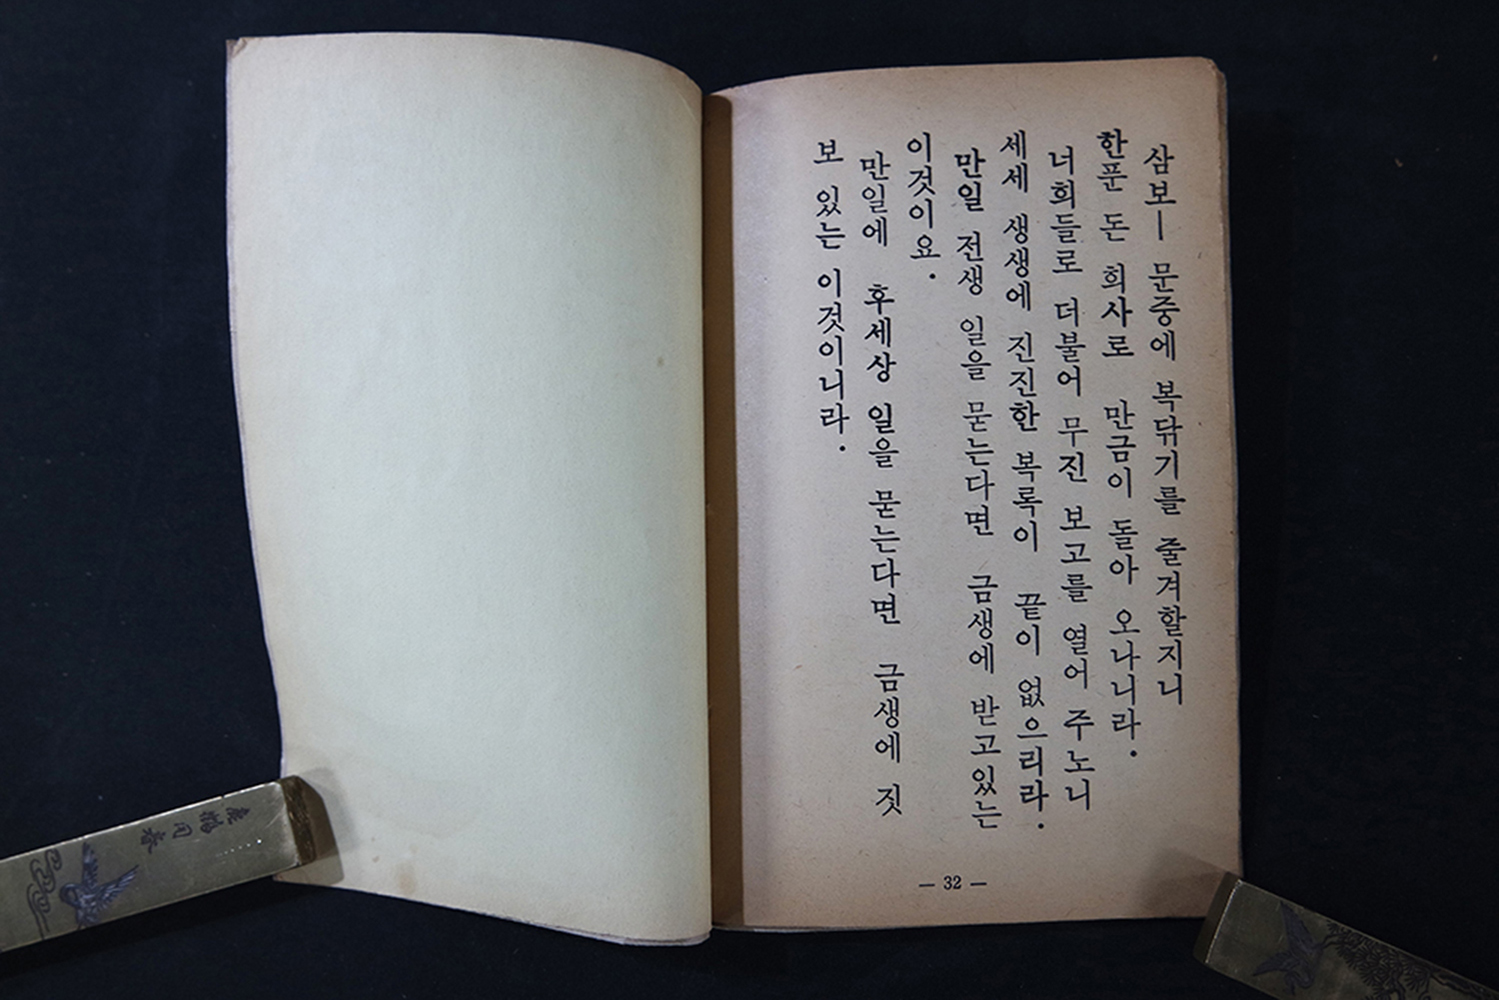 삼보ㅣ 문중에 복닦기를 줄겨할지니
한푼 돈 희사로 만금이 돌아 오나니라.
너희들로 더불어 무진 보고를 열어 주노니
세세 생생에 진진한 복록이 끝이 없으리라.
만일 전생 일을 묻는다면 금생에 받고있는
이것이요.
만일에 후세상 일을 묻는다면 금생에 짓
보 있는 이것이니라.
— 32 —